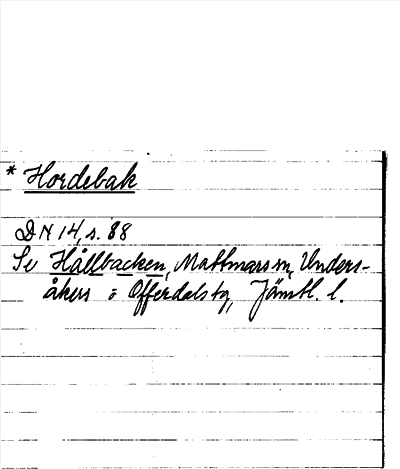 * Hordebak
DN 14, s. 88
Se Hållbacken, Mattmars sn, Unders-
åkers o Offerdals tg, Jämtl. l.